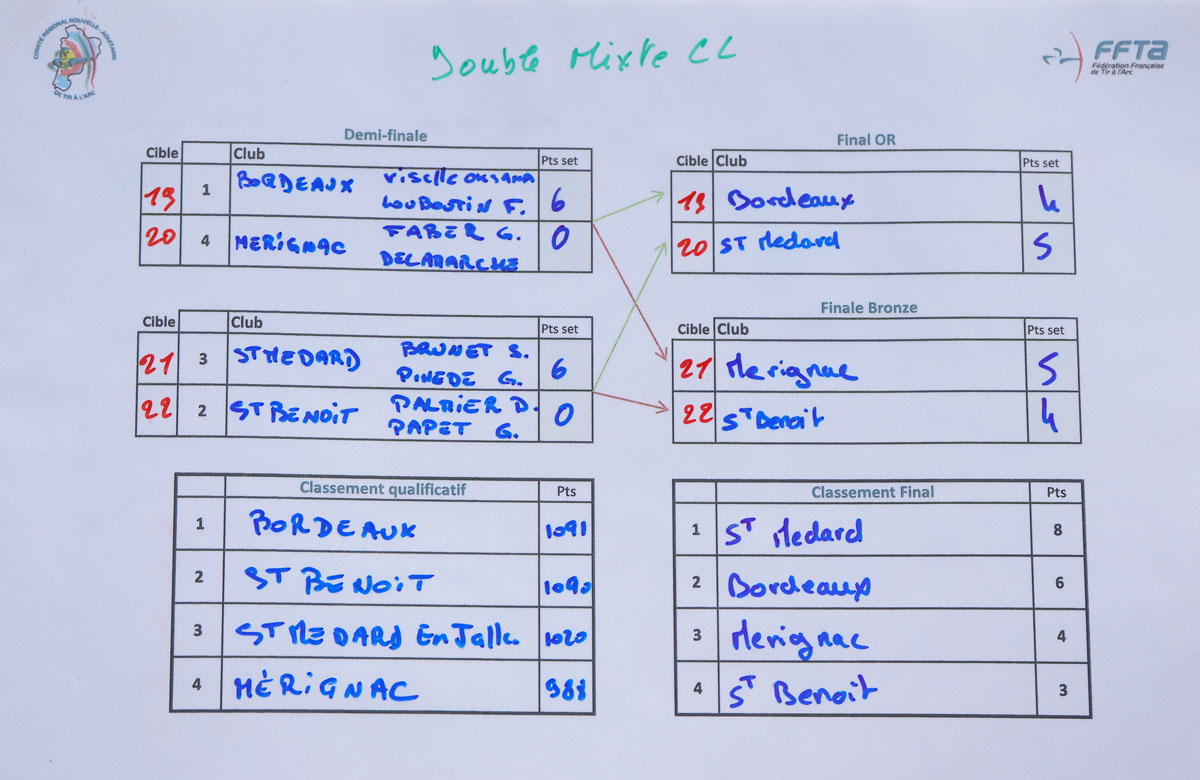 COMITÉ RÉGIONAL NOUVELLE - AQUITAINE
DE TIR À L'ARC
Double Mixte CL
FFTA
Fédération Française
de Tir à l'Arc
Demi-finale
Cible Club Pts set
19 1 BORDEAUX VISELLE OKSAMA 6
LOUBOUTIN F.
20 4 MERIGNAC FABER G. 0
DELAMARCHE
Final OR
Cible Club Pts set
19 Bordeaux 4
20 ST Medard 5
Cible Club Pts set
21 3 ST MEDARD BRUNET S. 6
PINEDE G.
22 2 ST BENOIT PALMIER D. 0
PAPET G.
Finale Bronze
Cible Club Pts set
21 Merignac 5
22 ST Benoit 4
Classement qualificatif Pts
1 BORDEAUX 1091
2 ST BENOIT 1090
3 ST MEDARD En Jalle. 1020
4 MÉRIGNAC 988
Classement Final Pts
1 ST Medard 8
2 Bordeaux 6
3 Merignac 4
4 ST Benoit 3